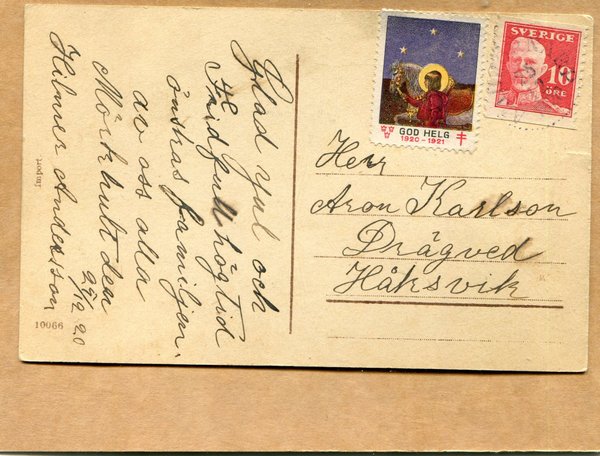 Glad jul och
Fridfull högtid
önskas familjen
av oss alla
Mörkhult den
22/12 20
Hilmer Andersson
Import
10066
GOD HELG
1920-1921
SVERIGE
10
ÖRE
Herr
Aron Karlson
Drägved
Håksvik